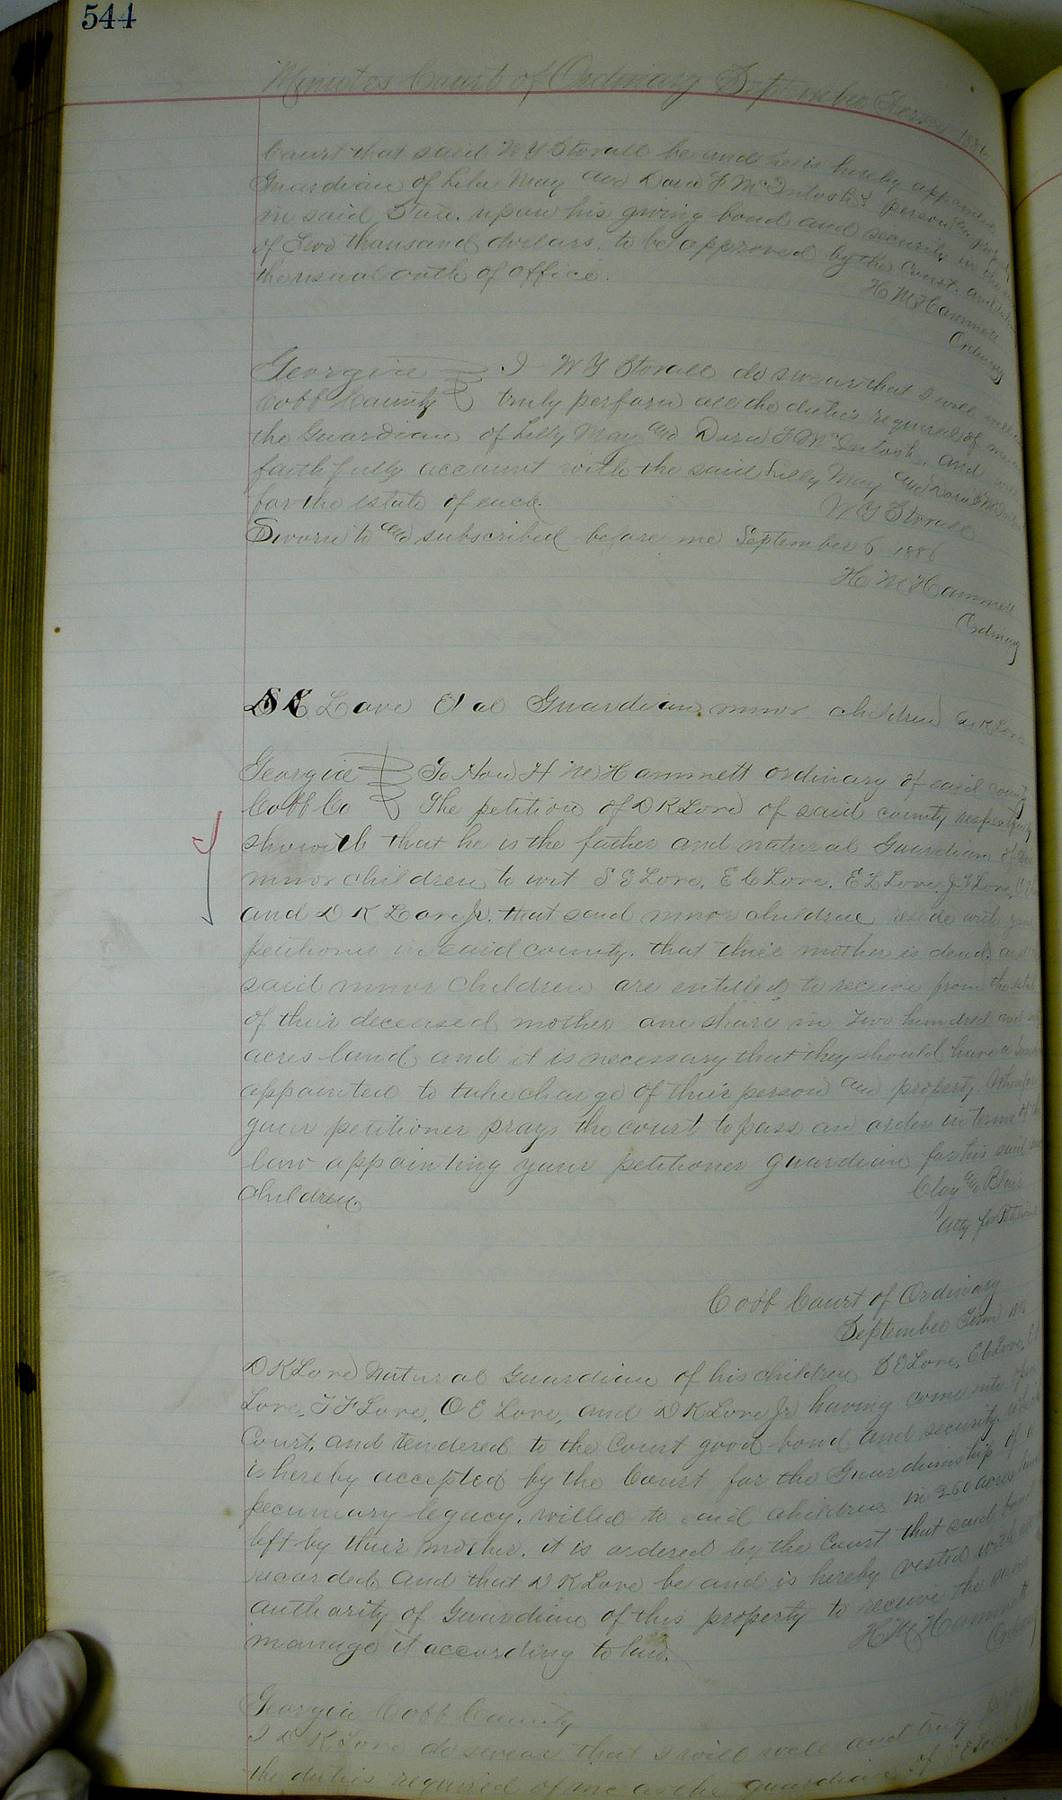 544
Minutes Court of Ordinary September Term 1886
Court that said W Y Stovall be and he is hereby appointed
Guardian of Lela May and Dora F McIntosh's person and
in said State. upon his giving bond and security in the
of Two thousand dollars. to be approved by the Court. and
the usual oath of office.
H M Hammett
Ordinary
Georgia I W Y Stovall do swear that I will well
Cobb County truly perform all the duties required of me
the Guardian of Lilly May and Dora F McIntosh, and will
faithfully account with the said Lilly May and Dora F McIntosh
for the estate of each.
W Y Stovall
Sworn to and subscribed before me September 6 1886
H M Hammett
Ordinary
S E Love Et al Guardian minor children D K Love
Georgia To Hon H M Hammett ordinary of said county
Cobb Co The petition of D K Love of said county respectfully
sheweth that he is the father and natural Guardian of
minor children to wit S E Love, E C Love, E L Love, J F Love,
and D K Love Jr. that said minor children reside with your
petitioner in said county. that their mother is dead. and
said minor children are entitled to receive from the estate
of their deceased mother one share in Two hundred and
acres land and it is necessary that they should have a
appointed to take charge of their person and property Wherefore
your petitioner prays the court to pass an order in terms of the
law appointing your petitioner guardian for his said
children.
Clay and Blair
Atty for Petitioner
Cobb Court of Ordinary
September Term
D K Love Natural Guardian of his children S E Love, E C Love,
Love, J F Love, O E Love, and D K Love Jr having come into open
Court, and tendered to the Court good bond and security which
is hereby accepted by the Court for the Guardianship of
pecuniary legacy, willed to said children in 260 acres
left by their mother, it is ordered by the Court that said bond
recorded, and that D K Love be and is hereby vested with
authority of Guardian of this property to receive the
manage it according to law.
H M Hammett
Ordinary
Georgia Cobb County
I D K Love do swear that I will well and truly
the duties required of me as the guardian of S E Love